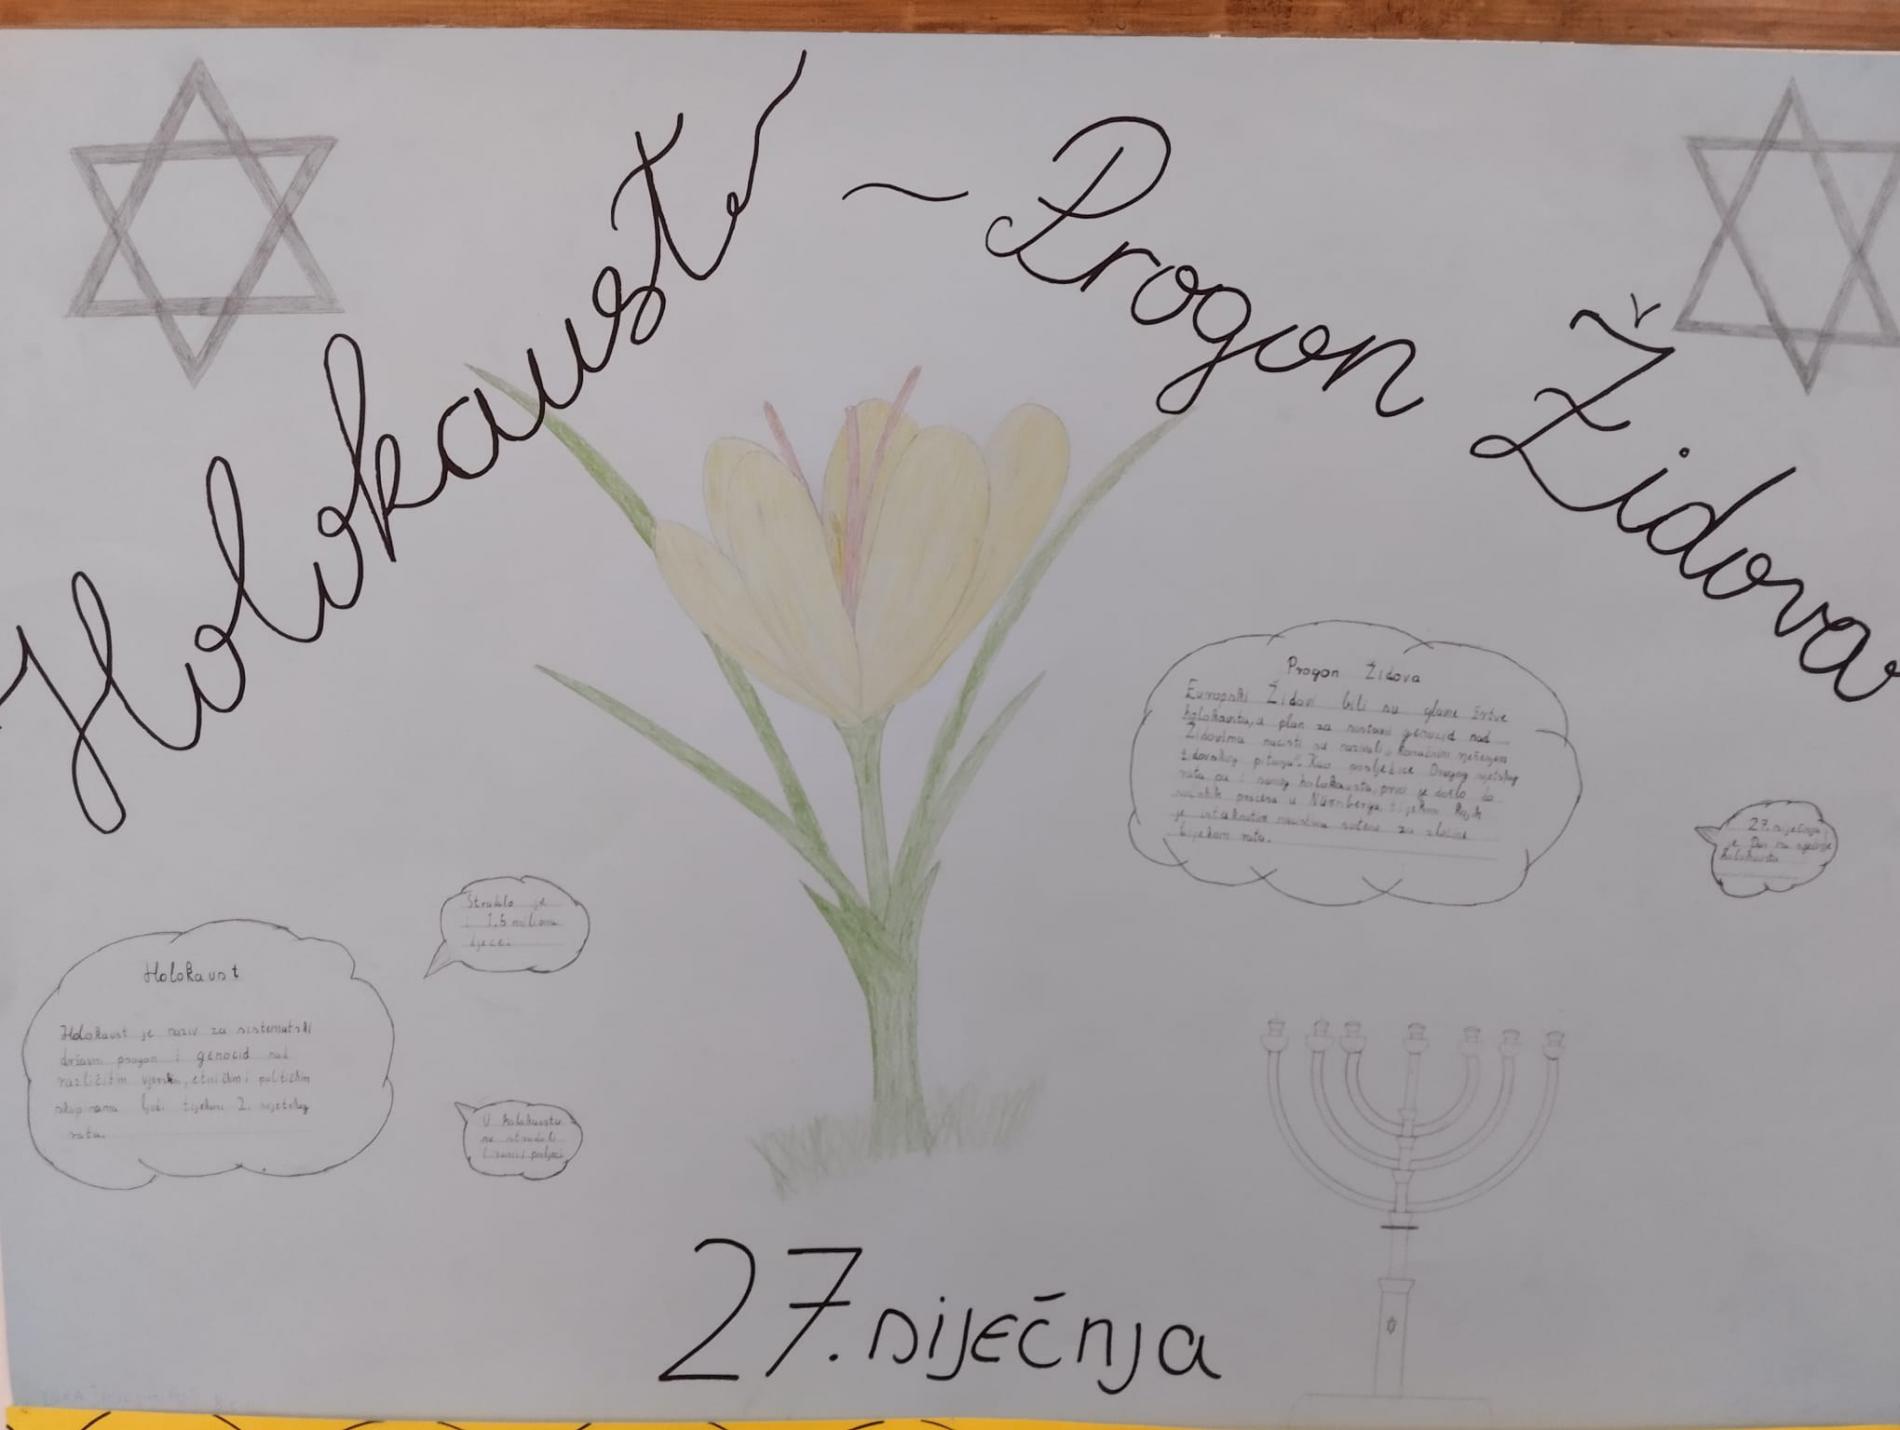 Holokaust ~ Progon Židova
Progon Židova
Europski Židovi bili su glavne žrtve
holokausta, a plan za nastavni genocid nad
Židovima nacisti su nazvali „konačnim rješenjem
židovskog pitanja". Kao posljedice Drugog svjetskog
rata pa i samog holokausta, prvo je došlo do
sudskih procesa u Nürnbergu tijekom kojih
je
tijekom rata.
27. siječnja
je Dan na sjećanje
holokausta
Stradalo je
i 1,5 miliona
djece.
Holokaust
Holokaust je naziv za sistematski
državni progon i genocid nad
različitim vjerskim, etničkim i političkim
skupinama ljudi tijekom 2. svjetskog
rata.
U holokaustu
su stradali
i
27. siječnja